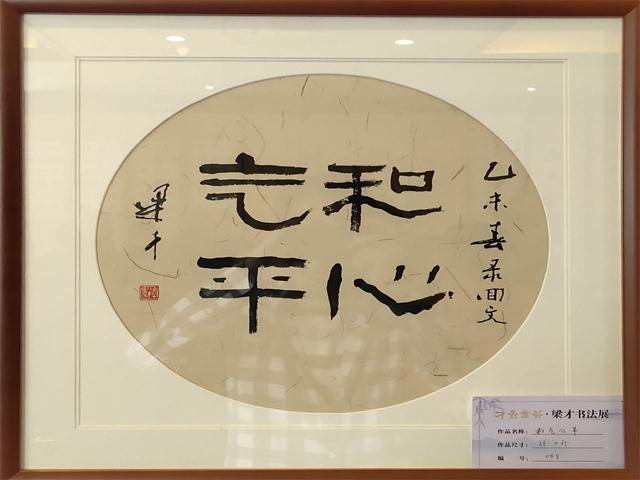 乙未春录回文
和气
心平
梁才
·梁才书法展
作品名称：和气心平
作品尺寸：
编 号：088